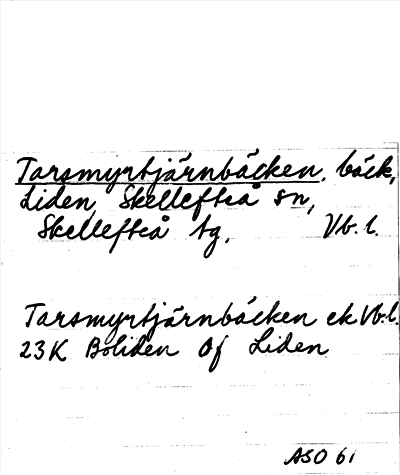 Tarsmyrtjärnbäcken, bäck,
Liden, Skellefteå sn,
Skellefteå tg, Vb. l.
Tarsmyrtjärnbäcken ek Vb. l.
23K Boliden Of Liden
ASO 61